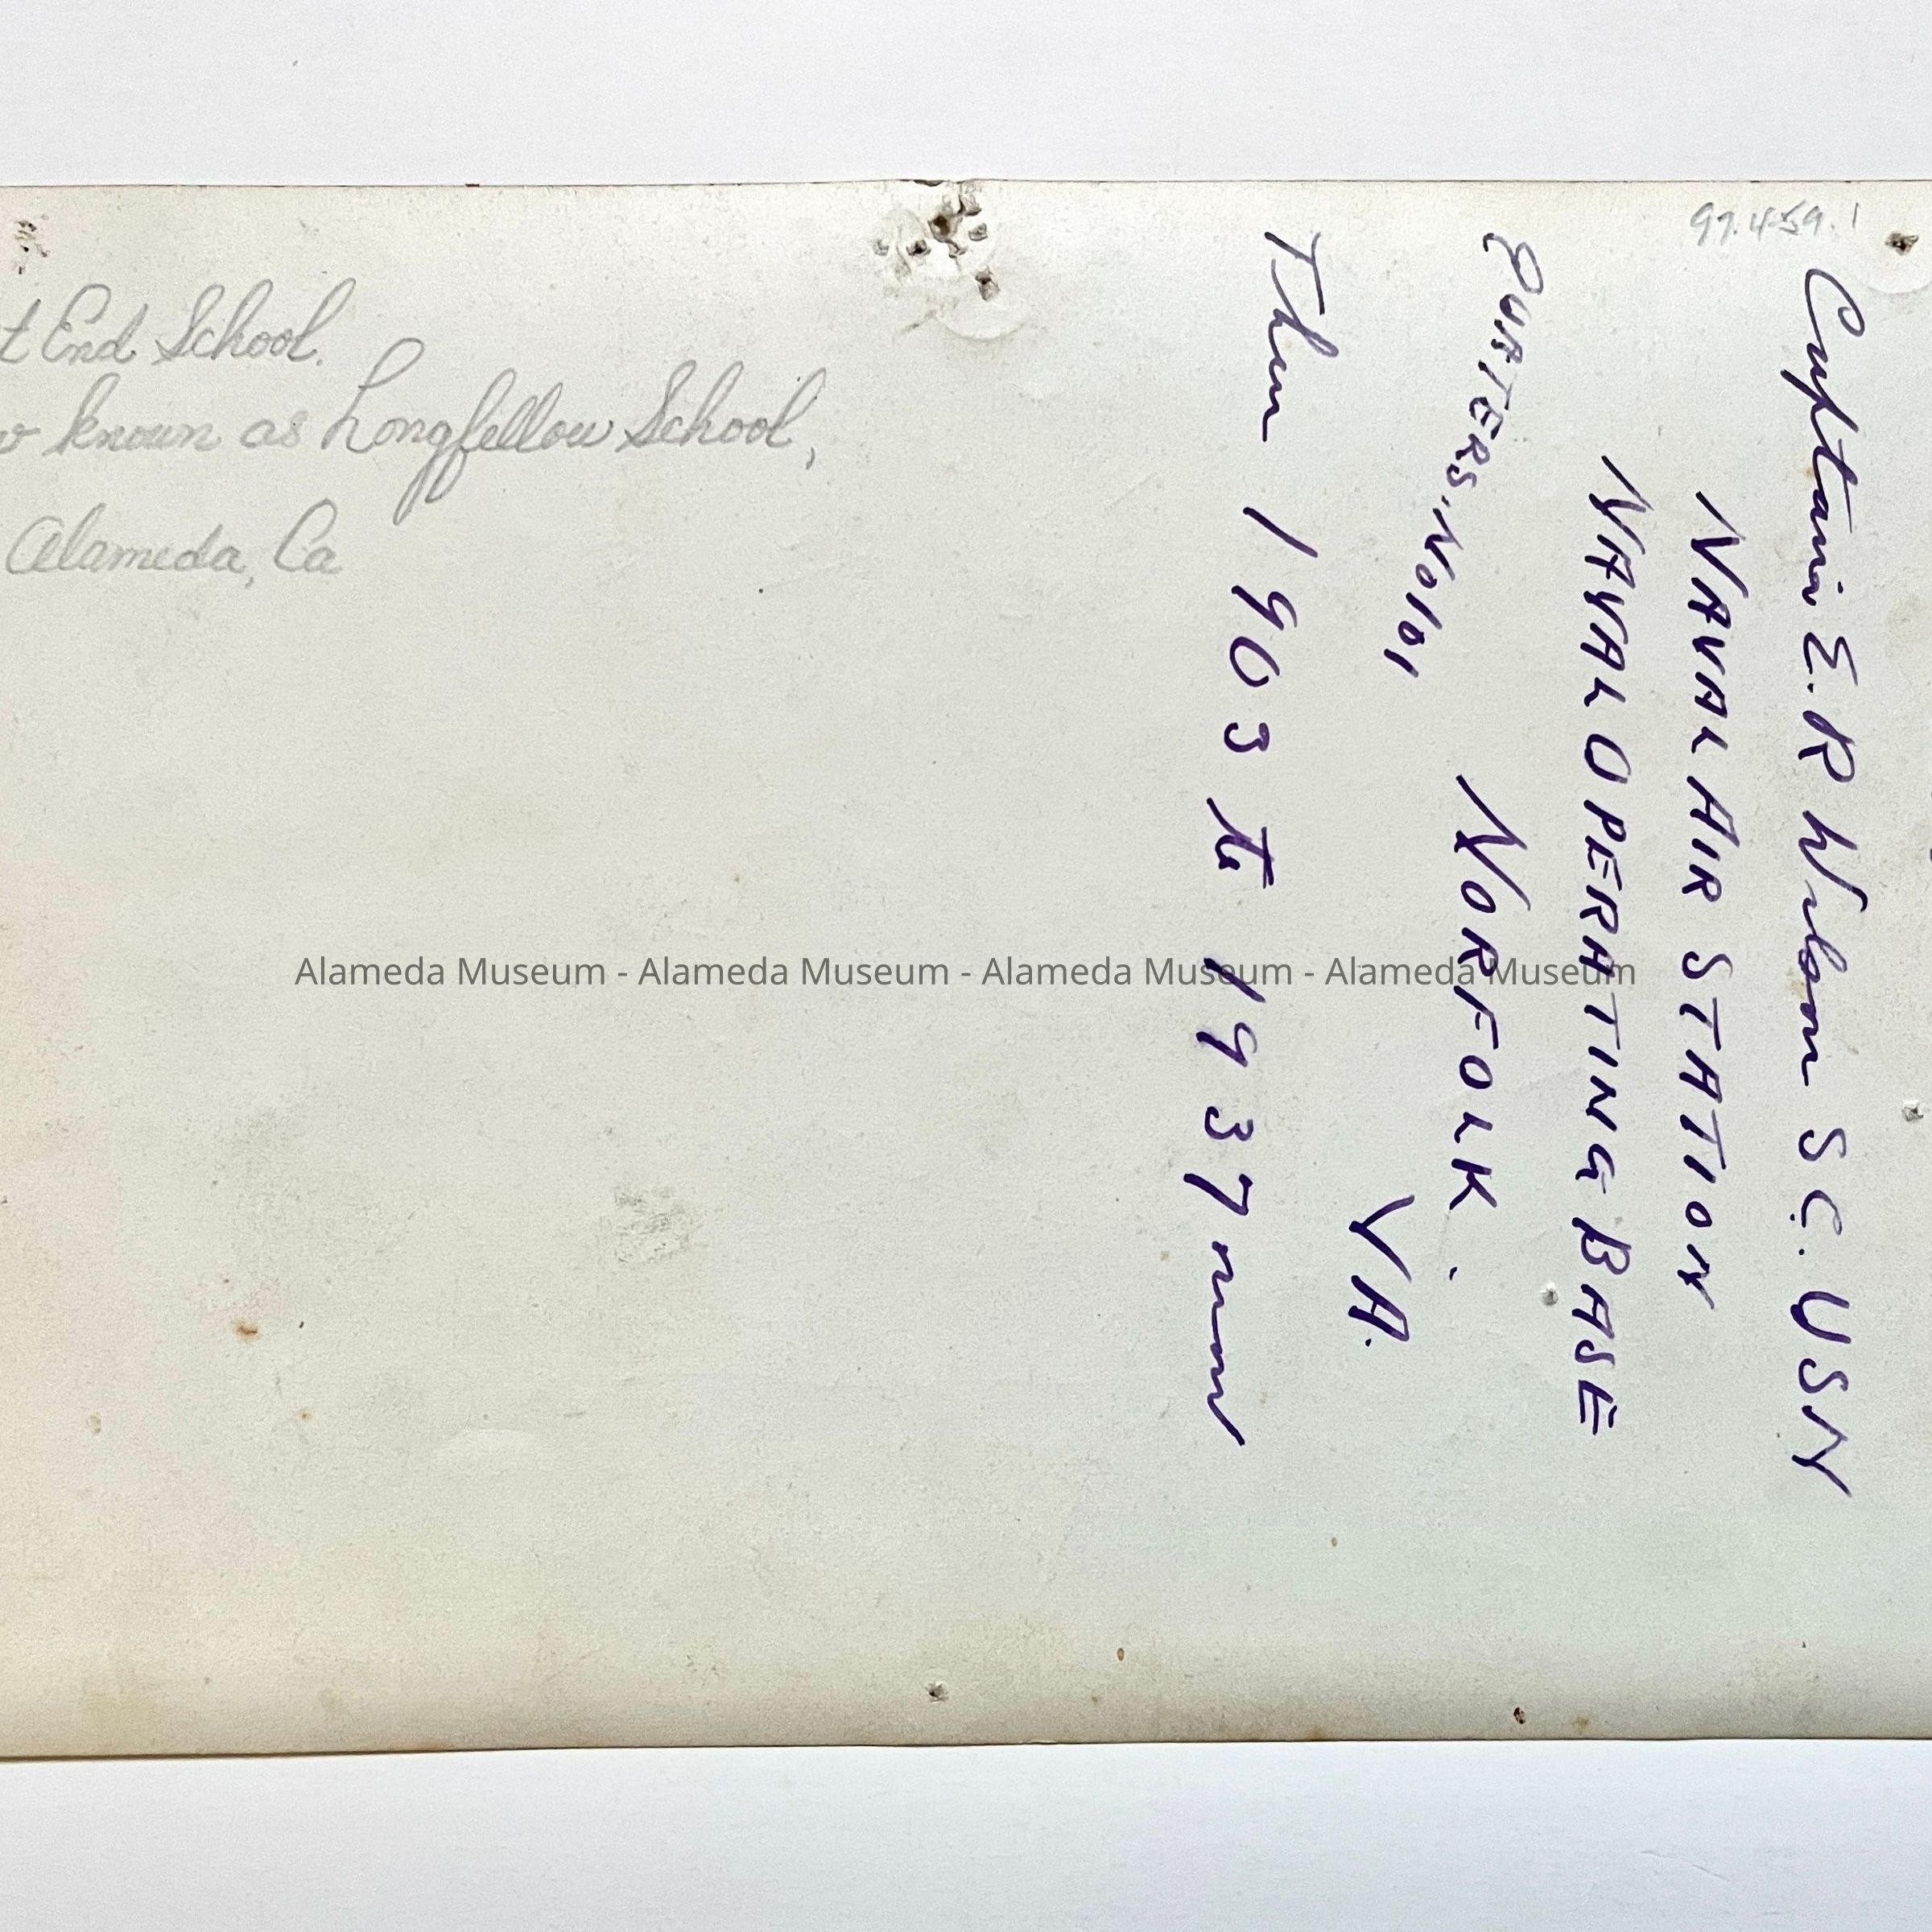 97.459.1
t End School.
w known as Longfellow School,
Alameda, Ca
Captain E. R Wilson S C. USN
NAVAL AIR STATION
NAVAL OPERATING BASE
QUATERS. No 101
NORFOLK.
VA.
Then 1903 to 1937 now
Alameda Museum - Alameda Museum - Alameda Museum - Alameda Museum